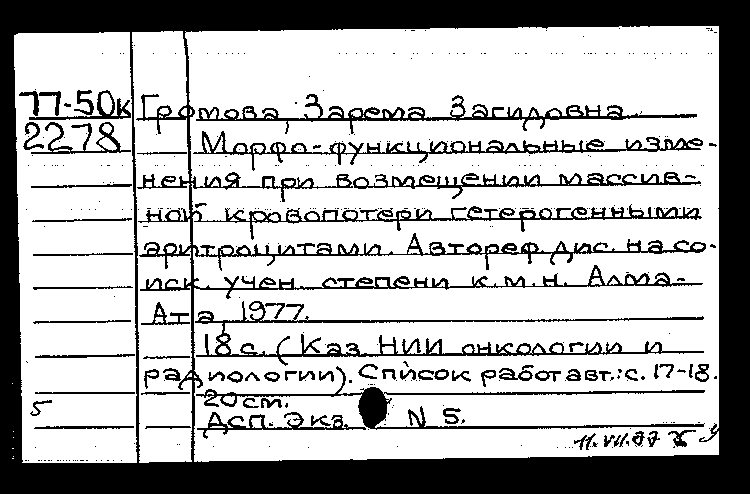 77-50к Громова, Зарема Загидовна
2278 Морфо-функциональные изме-
нения при возмещении массив-
ной кровопотери гетерогенными
эритроцитами. Автореф. дис. на со-
иск. учен. степени к.м.н. Алма-
Ата, 1977.
18 с. (Каз. НИИ онкологии и
радиологии). Список работ авт.: с. 17-18.
20 см.
5 Дсп. Экз. N 5.
11.VII.77